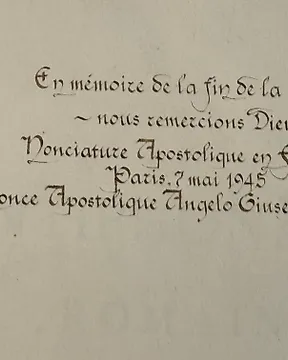 En mémoire de la fin de la
~ nous remercions Dieu
Nonciature Apostolique en
Paris, 7 mai 1945
once Apostolique Angelo Giuse